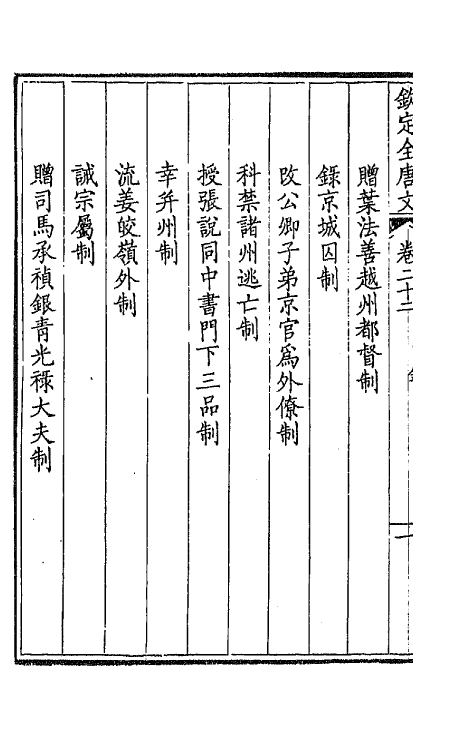 欽定全唐文 卷二十二
贈葉法善越州都督制
錄京城囚制
改公卿子弟京官爲外僚制
科禁諸州逃亡制
授張說同中書門下三品制
幸并州制
流姜皎嶺外制
誡宗屬制
贈司馬承禎銀青光祿大夫制